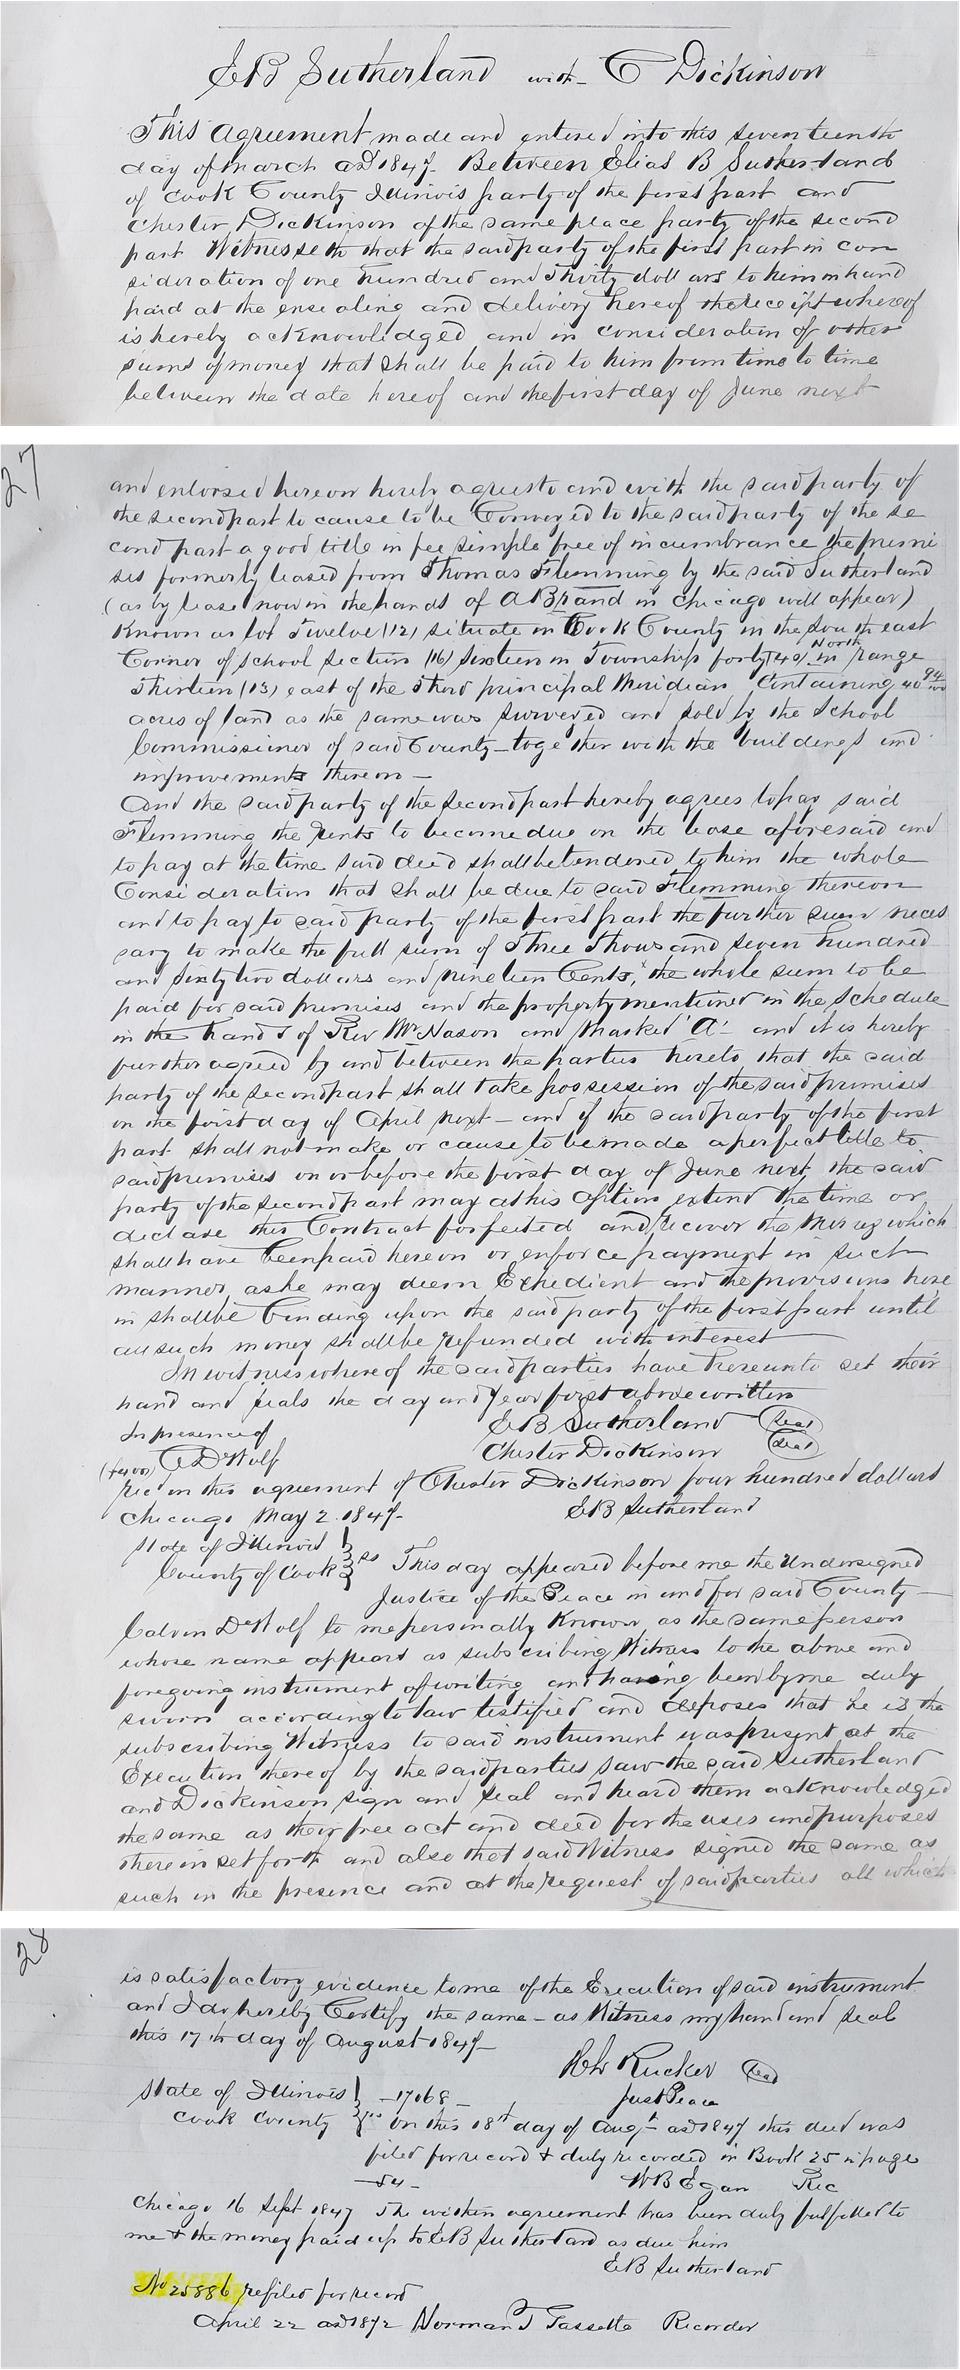 E B Sutherland with C Dickinson
This Agreement made and entered into this seventeenth
day of March AD 1847. Between Elias B Sutherland
of Cook County Illinois party of the first part and
Chester Dickinson of the same place party of the second
part Witnesseth that the said party of the first part in con
sideration of one hundred and Thirty dollars to him in hand
paid at the ensealing and delivery hereof the receipt whereof
is hereby acknowledged and in consideration of other
sums of money that shall be paid to him from time to time
between the date hereof and the first day of June next
27
and endorsed hereon hereby agrees to and with the said party of
the second part to cause to be Conveyed to the said party of the se
cond part a good title in fee simple free of incumbrance the premi
ses formerly leased from Thomas Flemming by the said Sutherland
(as by lease now in the hands of A Brand in Chicago will appear)
Known as lot Twelve (12) situate in Cook County in the South east
Corner of school section (16) Sixteen in Township forty (40) North in range
Thirteen (13) east of the Third principal Meridian Containing 40 94/100
acres of land as the same was surveyed and sold by the School
Commissioner of said County - together with the buildings and
improvements thereon -
And the said party of the second part hereby agrees to pay said
Flemming the rents to become due on the lease aforesaid and
to pay at the time said deed shall be tendered to him the whole
Consideration that shall be due to said Flemming thereon
and to pay to said party of the first part the further sum neces
sary to make the full sum of Three Thousand seven hundred
and sixty two dollars and nineteen Cents, the whole sum to be
paid for said premises and the property mentioned in the schedule
in the hands of Rev Mr Nason and Marked 'A' - and it is hereby
further agreed by and between the parties hereto that the said
party of the second part shall take possession of the said premises
on the first day of April next - and if the said party of the first
part shall not make or cause to be made a perfect title to
said premises on or before the first day of June next, the said
party of the second part may at his option extend the time or
declare this Contract forfeited and recover the Money which
shall have been paid hereon or enforce payment in such
manner as he may deem Expedient and the provisions here
in shall be binding upon the said party of the first part until
all such money shall be refunded with interest
In witness whereof the said parties have hereunto set their
hand and seals the day and Year first above written
In presence of E B Sutherland (Seal)
C DeWolf Chester Dickinson (Seal)
($400) Rec on this agreement of Chester Dickinson four hundred dollars
Chicago May 2. 1847- E B Sutherland
State of Illinois
County of Cook ss This day appeared before me the Undersigned
Justice of the Peace in and for said County -
Calvin DeWolf to me personally Known as the same person
whose name appears as subscribing Witness to the above and
foregoing instrument of writing and having been by me duly
sworn according to law testified and deposes that he is the
subscribing Witness to said instrument was present at the
Execution thereof by the said parties saw the said Sutherland
and Dickinson sign and seal and heard them acknowledged
the same as their free act and deed for the uses and purposes
therein set forth and also that said Witness signed the same as
such in the presence and at the request of said parties all which
28
is satisfactory evidence to me of the Execution of said instrument
and I do hereby Certify the same - as Witness my hand and seal
this 17th day of August 1847-
H L Rucker (Seal)
State of Illinois - 17068 - Just Peace
Cook County ss On this 18th day of Augt AD 1847 this deed was
filed for record & duly recorded in Book 25 in page
- 54 - W B Egan Rec
Chicago 16 Sept 1847 The within agreement has been duly fulfilled to
me & the money paid up to E B Sutherland as due him
E B Sutherland
No 25886 refiled for record
April 22 AD 1872 Norman T Gassette Recorder